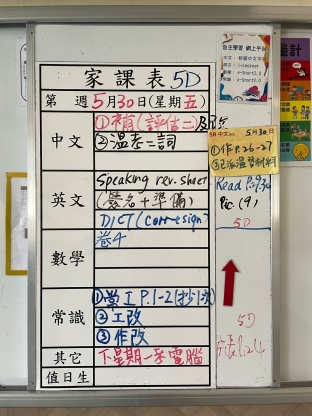 家課表 5D
第 週 5月30日(星期五)
中文
①補(評估二)及
②溫卷二詞
英文
Speaking rev. sheet
(簽名+準備)
DICT (corr+sign)
數學
卷4
常識
①常工 P.1-2(抄1次)
②工改
③作改
其它
下星期一考電腦
值日生
自主學習 網上平台
5月30日
①作P.26-27
②已派溫習材料
Read P.9,30
Pic. (9)
5D
5D